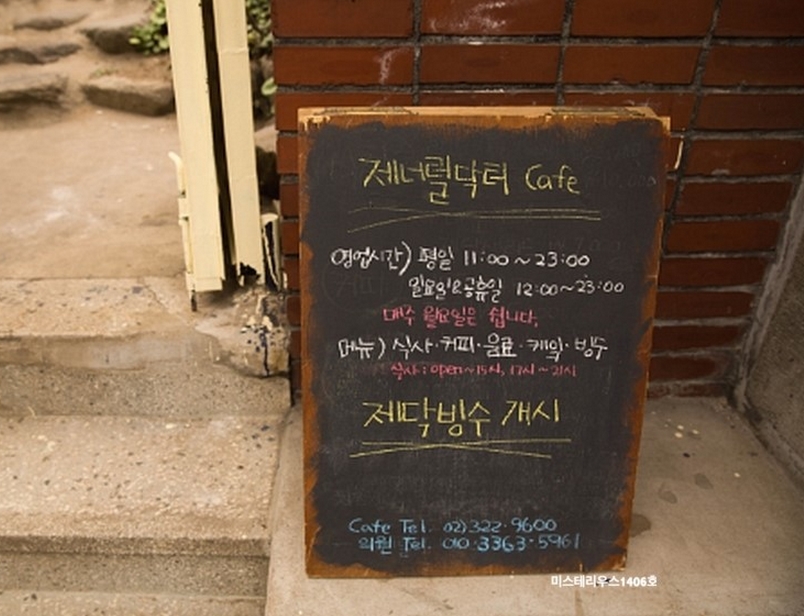 제너럴닥터 Cafe
영업시간) 평일 11:00 ~ 23:00
일요일&공휴일 12:00 ~ 23:00
매주 월요일은 쉽니다.
메뉴) 식사·커피·음료·케익·빙수
식사 : open ~ 15시, 17시 ~ 21시
제닥빙수 개시
Cafe Tel. 02) 322·9600
의원 Tel. 010·3363·5961
미스테리우스1406호